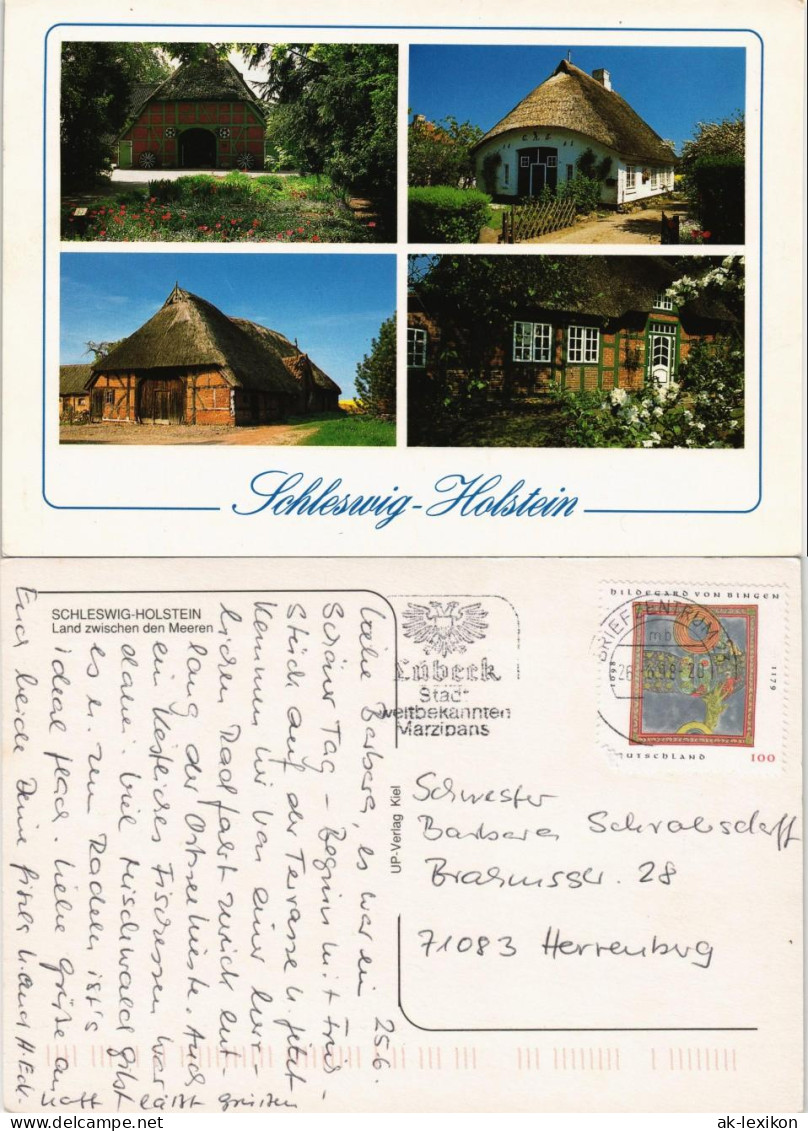 Schleswig-Holstein
SCHLESWIG-HOLSTEIN
Land zwischen den Meeren
Lübeck
Stadt
weltbekannten
Marzipans
BRIEFZENTRUM
mb
HILDEGARD VON BINGEN
1098
1179
DEUTSCHLAND 100
UP-Verlag Kiel
25.6.
Liebe Barbara, es war ein
schöner Tag - Beginn mit Früh-
stück auf der Terrasse u. jetzt
kommen wir von einer herr-
lichen Radfahrt zurück ent-
lang der Ostseeküste. Auch
ein köstliches Fischessen war
dabei. Viel Mischwald gibt
es u. zum Radeln ist's
ideal flach. Liebe Grüße an
Euch beide Deine
läßt grüßen
Schwester
Barbara
Brahmsstr. 28
71083 Herrenberg
ak-lexikon.com